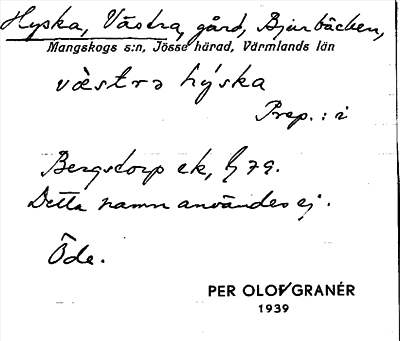 Hyska, Västra, gård, Bjurbäcken,
Mangskogs s:n, Jösse härad, Värmlands län
vàstrə hýska
Prep.: i
Bergstorp ek, G 79.
Detta namn användes ej.
Öde.
PER OLOF GRANÉR
1939